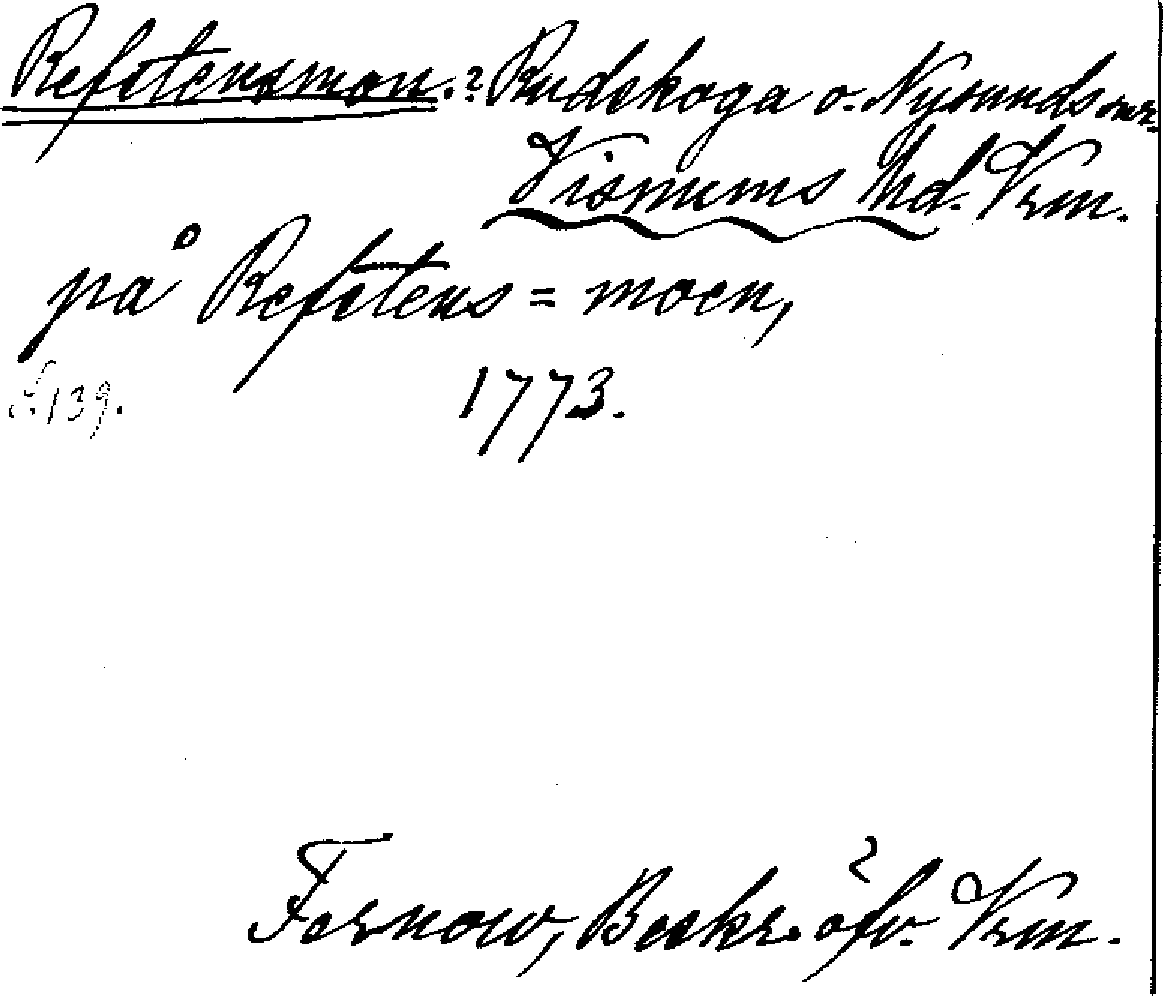 Refstensmon.? Rudskoga o. Nysunds snr.
Visnums hd. Vrm.
på Refstens=moen,
1773.
S. 139.
Fernow, Beskr. öfv. Vrm.